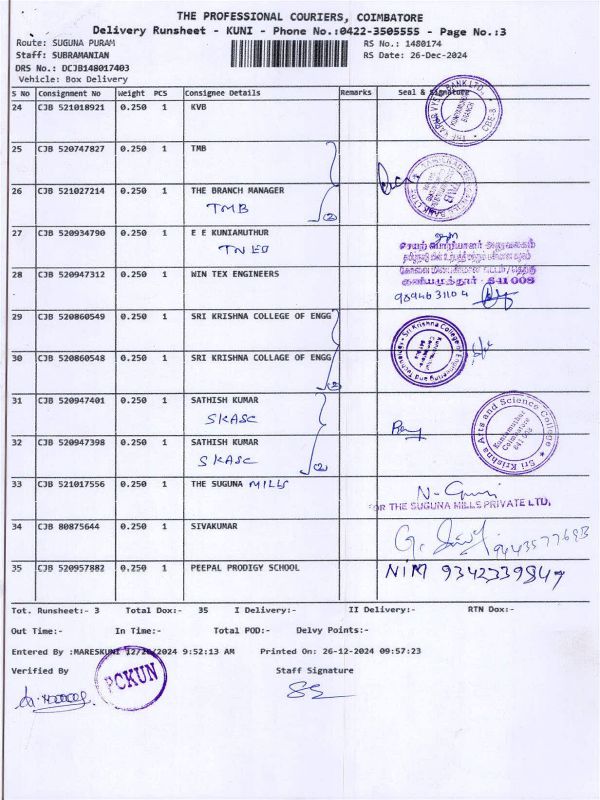 THE PROFESSIONAL COURIERS, COIMBATORE
Delivery Runsheet - KUNI - Phone No.:0422-3505555 - Page No.:3
Route: SUGUNA PURAM RS No.: 1480174
Staff: SUBRAMANIAN RS Date: 26-Dec-2024
DRS No.: DCJB148017403
Vehicle: Box Delivery
S No Consignment No Weight PCS Consignee Details Remarks Seal & Signature
24 CJB 521018921 0.250 1 KVB
25 CJB 520747827 0.250 1 TMB
26 CJB 521027214 0.250 1 THE BRANCH MANAGER
TMB
27 CJB 520934790 0.250 1 E E KUNIAMUTHUR
TNEB
செயற் பொறியாளர் அலுவலகம்
28 CJB 520947312 0.250 1 WIN TEX ENGINEERS
குனியமுத்தூர் - 641 008
29 CJB 520860549 0.250 1 SRI KRISHNA COLLEGE OF ENGG
Sri Krishna College of Engineering and Technology
30 CJB 520860548 0.250 1 SRI KRISHNA COLLAGE OF ENGG
31 CJB 520947401 0.250 1 SATHISH KUMAR
SKASC
Sri Krishna Arts and Science College
Kuniamuthur
Coimbatore
641 008
32 CJB 520947398 0.250 1 SATHISH KUMAR
SKASC
33 CJB 521017556 0.250 1 THE SUGUNA MILLS
FOR THE SUGUNA MILLS PRIVATE LTD,
34 CJB 80875644 0.250 1 SIVAKUMAR
35 CJB 520957882 0.250 1 PEEPAL PRODIGY SCHOOL NIM 9342339847
Tot. Runsheet:- 3 Total Dox:- 35 I Delivery:- II Delivery:- RTN Dox:-
Out Time:- In Time:- Total POD:- Delvy Points:-
Entered By :MARESKUNI 12/26/2024 9:52:13 AM Printed On: 26-12-2024 09:57:23
Verified By Staff Signature
PCKUN